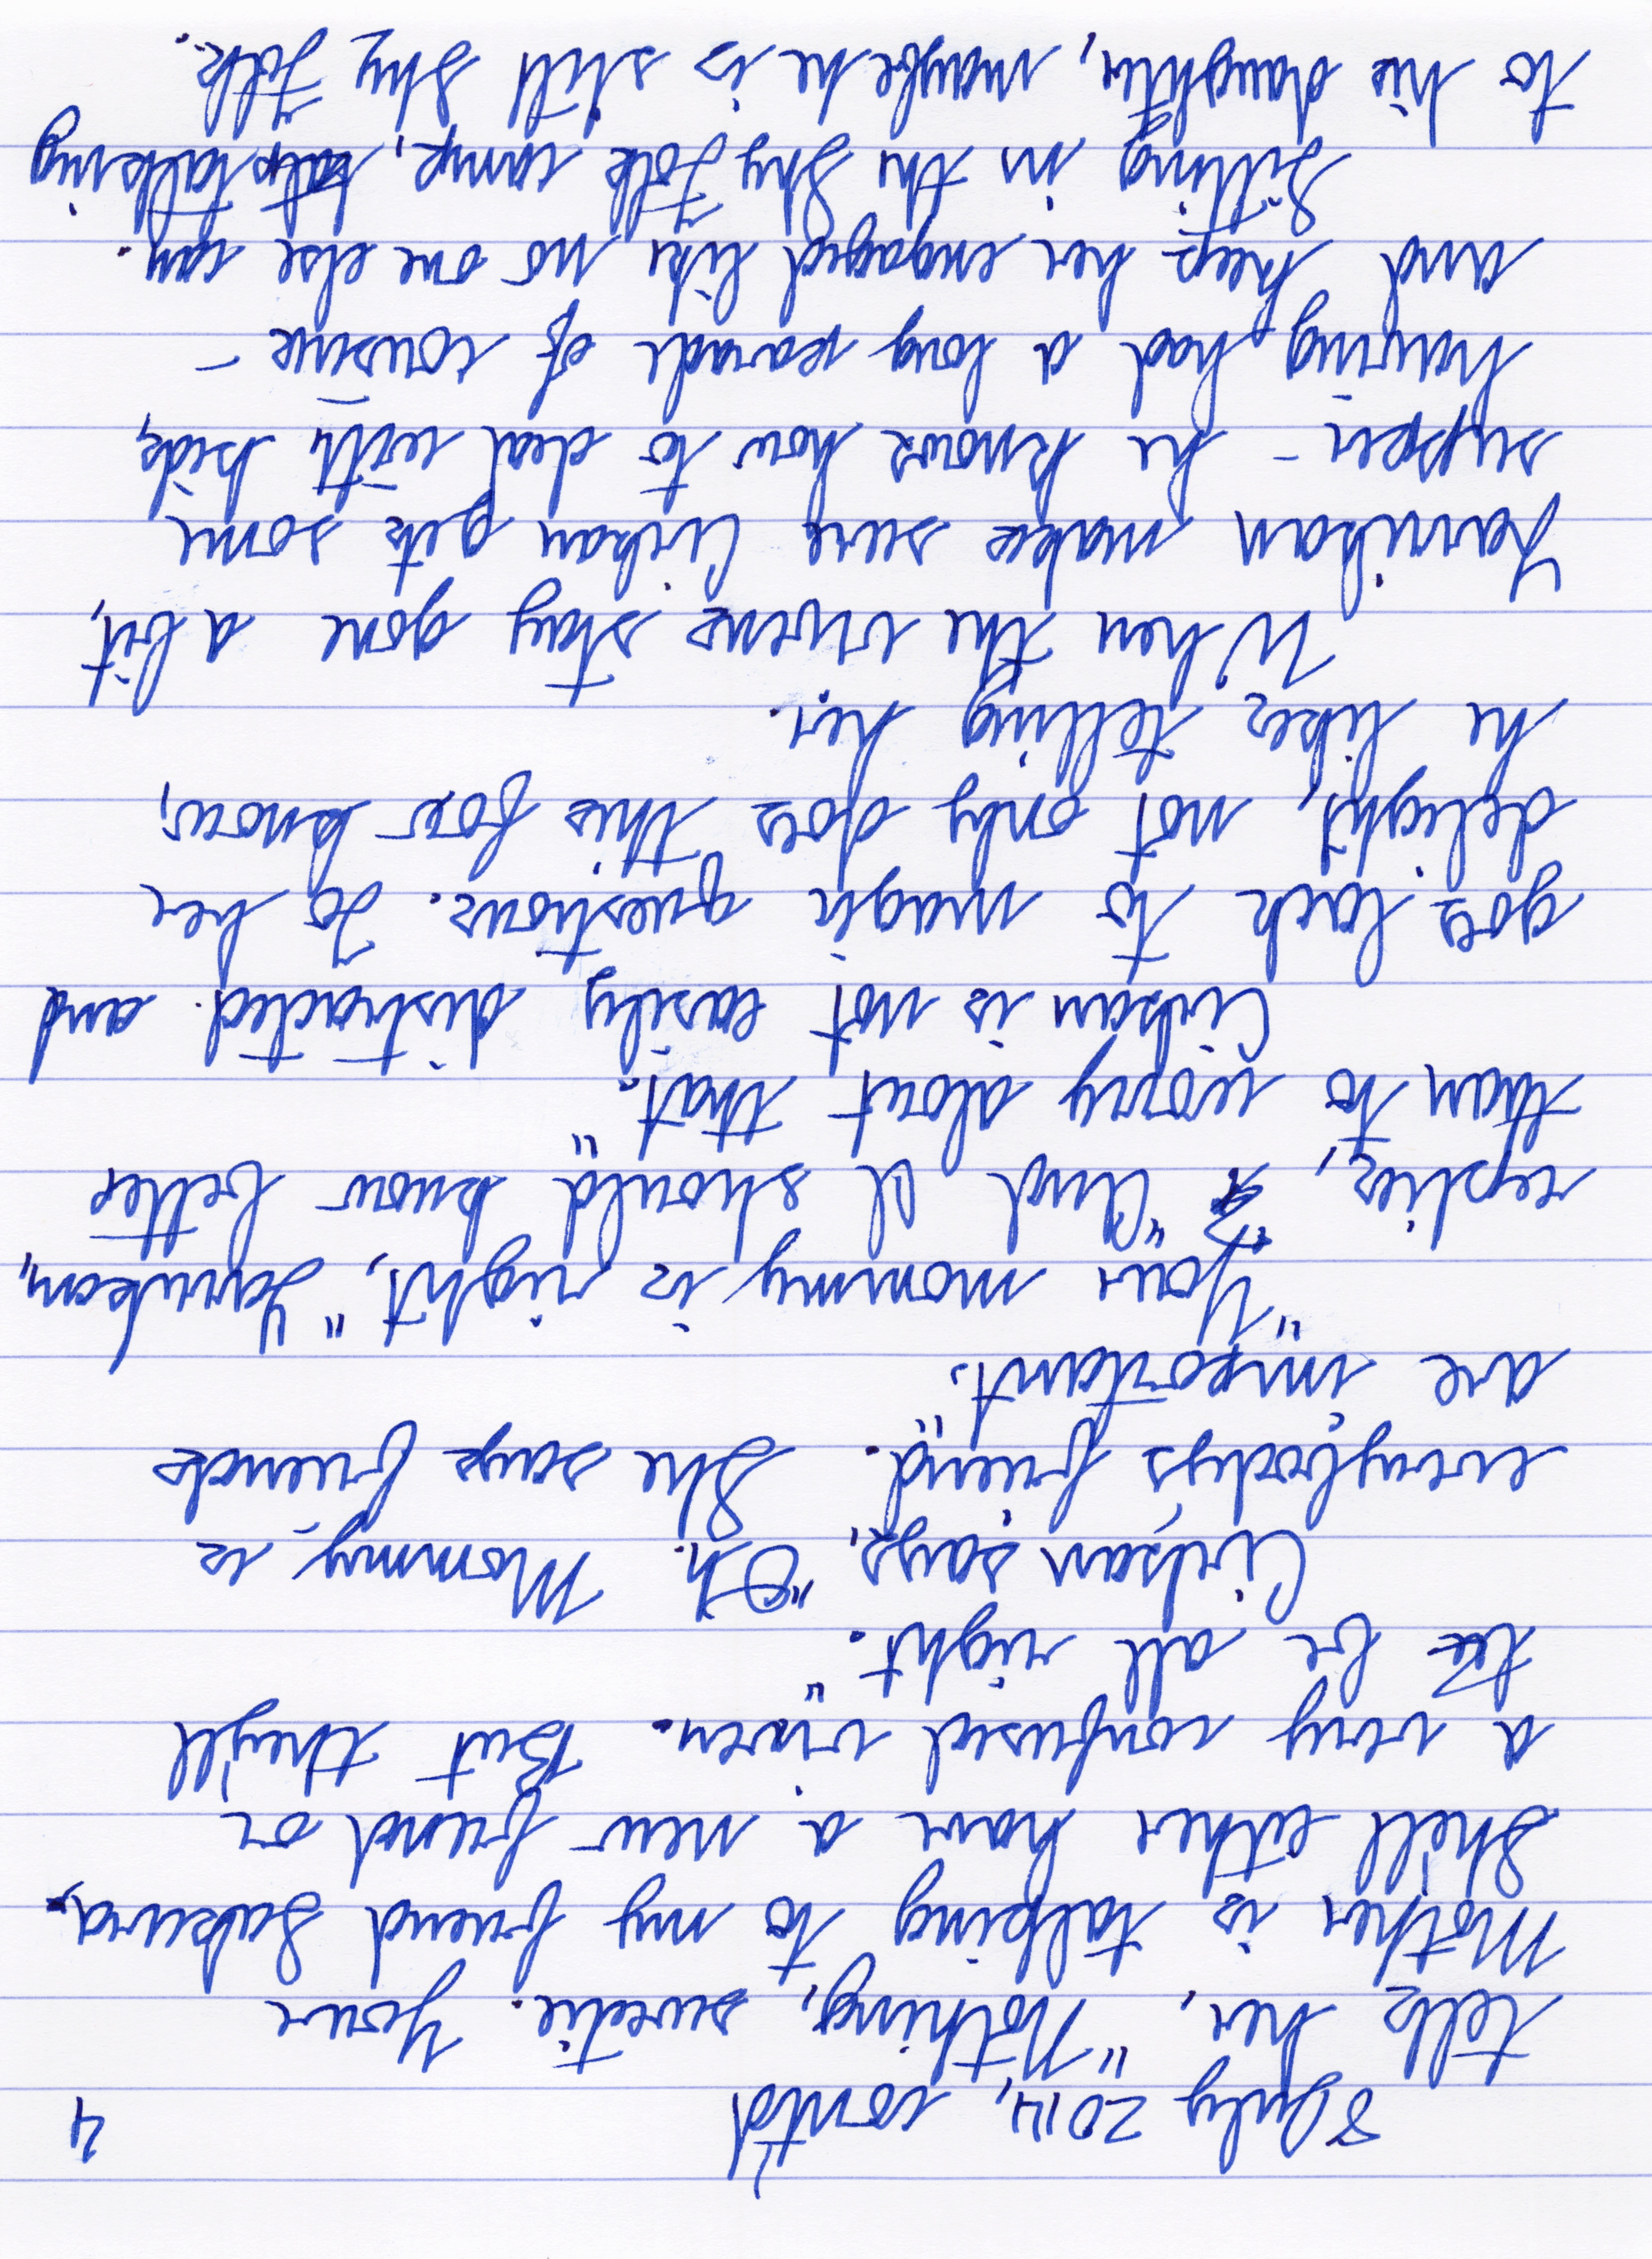 8 July 2014, cont'd 4
tells her, "Nothing, sweetie. Your
Mother is talking to my friend Sakura.
She'll either have a new friend or
a very confused vixen. But they'll
be all right."
Arksan says, "Oh. Mommy is
everybody's friend. She says friends
are important."
"Your mommy is right," Yarukan,
replies, "And I should know better
than to worry about that."
is not easily distracted. and
goes back to magic questions. To her
delight, not only does this fox know,
he likes telling her.
When the vixens stay gone a bit,
makes sure gets some
supper - he knows how to deal with kids,
having had a long parade of cousins -
and keep her engaged like no one else can.
Sitting in the Shy Folk camp, talking
to his daughter, maybe he is still Shy Folk.